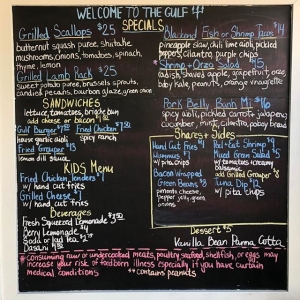 WELCOME TO THE GULF
SPECIALS
Grilled Scallops $25
butternut squash puree, shiitake
mushrooms, onions, tomatoes, spinach,
thyme, lemon
Grilled Lamb Rack $25
sweet potato puree, brussels sprouts,
candied pecans, bourbon glaze, green onion
SANDWICHES
lettuce, tomatoes, brioche bun
add cheese or bacon
Gulf Burger
house garlic dill
Fried Chicken
spicy ranch
Fried Grouper $13
lemon dill sauce
KIDS Menu
Fried Chicken Tenders
w/ hand cut fries
Grilled Cheese
w/ hand cut fries
Beverages
Fresh Squeezed Lemonade
Berry Lemonade $4
Soda or Iced Tea
Dasani
Blackened Fish or Shrimp Tacos $14
pineapple slaw, chili lime aioli, pickled
peppers, cilantro, purple chips
Shrimp + Orzo Salad $15
radish, shaved apple, grapefruit, orzo,
baby kale, peanuts, orange vinaigrette
Pork Belly Banh Mi $16
spicy aioli, pickled carrots, jalapeño,
cucumber, mint, cilantro, potay bread
Shares + Sides
Hand Cut Fries $4
Hummus
w/ pita chips
Bacon Wrapped
Green Beans $8
pimento cheese,
pepper jelly,
green onions
Peel + Eat Shrimp
Mixed Green Salad $5
w/ tomatoes, cucumbers
balsamic
add Grilled Grouper
Tuna Dip $12
w/ pita chips
Dessert $5
Vanilla Bean Panna Cotta
* Consuming raw or undercooked meats, poultry, seafood, shellfish, or eggs may
increase your risk of foodborn illness, especially if you have certain
medical conditions
** contains peanuts